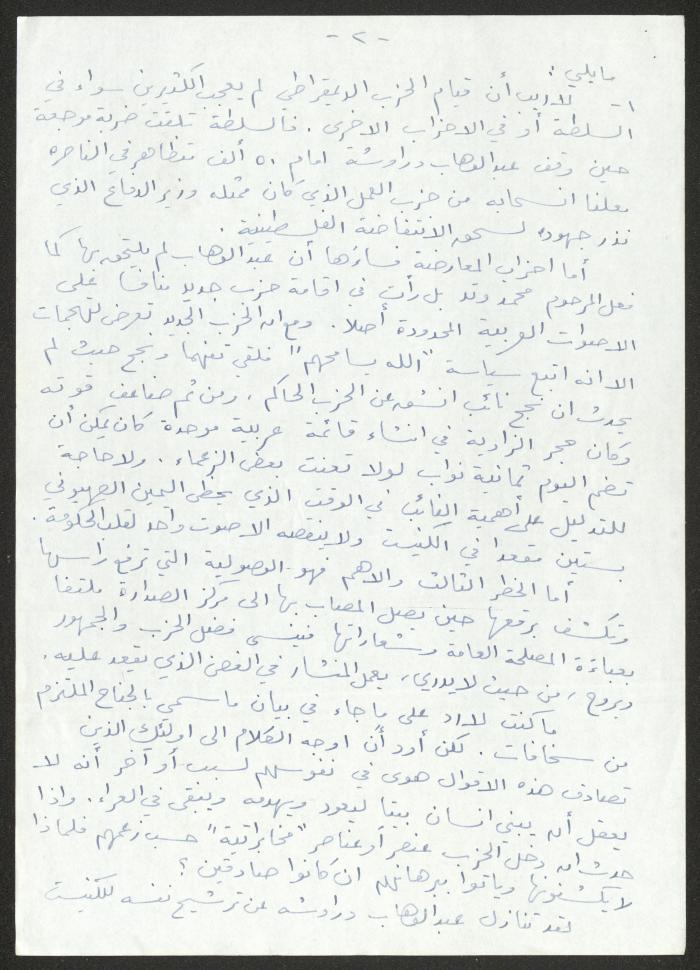 - ٢ -
مايلي :
١- لاريب أن قيام الحزب الديمقراطي لم يعجب الكثيرين سواء في
السلطة أو في الاحزاب الاخرى . فالسلطة تلقت ضربة موجعة
حين وقف عبدالوهاب دراوشة امام ٥٠ ألف متظاهر في الناصره
معلنا انسحابه من حزب العمل الذي كان ممثله وزير الدفاع الذي
نذر جهوده لسحق الانتفاضة الفلسطينية .
أما احزاب المعارضة فساءها أن عبدالوهاب لم يلتحق بها كما
فعل المرحوم محمد وتد بل رأت في اقامة حزب جديد منافسا على
الاصوات العربية المحدودة أصلا . ومع ان الحزب الجديد تعرض للهجمات
الا انه اتبع سياسة "الله يسامحهم" فلقي تفهما ونجح حيث لم
يحدث ان نجح نائب انشق عن الحزب الحاكم ، ومن ثم ضاعف قوته
وكان حجر الزاوية في انشاء قائمة عربية موحدة كان يمكن أن
تضم اليوم ثمانية نواب لولا تعنت بعض الزعماء . ولا حاجة
للتدليل على أهمية النائب في الوقت الذي يحظى اليمين الصهيوني
بستين مقعدا في الكنيست ولا ينقصه الا صوت واحد لقلب الحكومة .
أما الخطر الثالث والاهم فهو الوصولية التي ترفع راسها
وتكشف برقعها حين يصل المصاب بها الى مركز الصدارة ملتفا
بعباءة المصلحة العامة وشعاراتها فينسى فضل الحزب والجمهور
ويروح ، من حيث لايدري ، يعمل المنشار في الغصن الذي يقعد عليه .
ماكنت لارد على ماجاء في بيان ما سمي بالجناح الملتزم
من سخافات . لكن أود أن اوجه الكلام الى اولئك الذين
تصادف هذه الاقوال هوى في نفوسهم لسبب أو آخر أنه لا
يعقل أن يبني انسان بيتا ليعود ويهدمه ويبقى في العراء . واذا
حدث ان دخل الحزب عنصر أو عناصر "مخابراتية" حسب زعمهم فلماذا
لايكشفونها وياتوا ببرهانهم ان كانوا صادقين ؟
لقد تنازل عبدالوهاب دراوشه عن ترشيح نفسه للكنيست